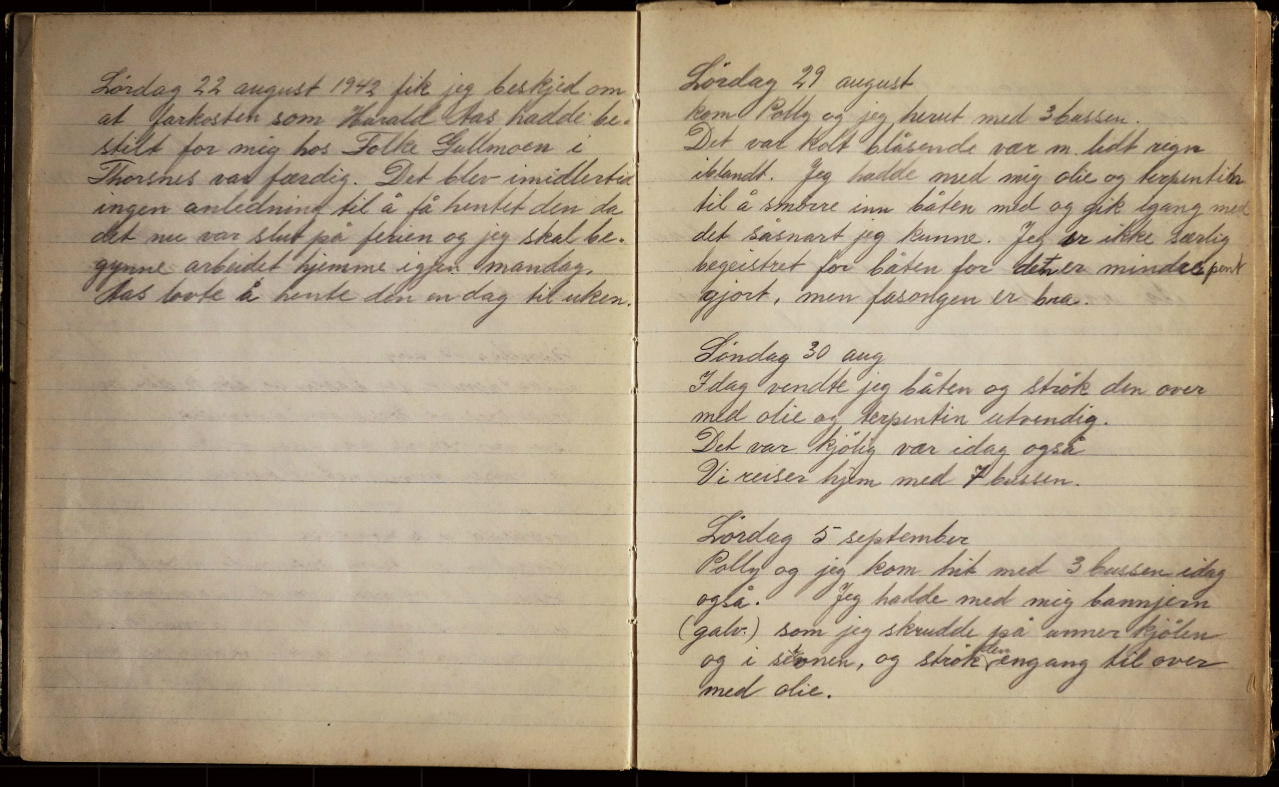 Lördag 22 august 1942 fik jeg beskjed om
at farkosten som Harald Aas hadde be-
stilt for mig hos Folke Gullmoen i
Thorsnes var færdig. Det blev imidlertid
ingen anledning til å få hentet den da
det nu var slut på ferien og jeg skal be-
gynne arbeidet hjemme igjen mandag.
Aas lovte å hente den en dag til uken.
Lördag 29 august
kom Polly og jeg herut med 3 bussen.
Det var kolt blåsende vær m. lidt regn
iblandt. Jeg hadde med mig olie og terpentin
til å smörre inn båten med og gik igang med
det såsnart jeg kunne. Jeg er ikke særlig
begeistret for båten for den er mindre pent
gjort, men fasongen er bra.
Söndag 30 aug
Idag vendte jeg båten og strök den over
med olie og terpentin utvendig.
Det var kjölig vær idag også
Vi reiser hjem med 7 bussen.
Lördag 5 september
Polly og jeg kom hit med 3 bussen idag
også. Jeg hadde med mig bannjern
(galv.) som jeg skrudde på unner kjölen
og i stevnen, og strök den engang til over
med olie.